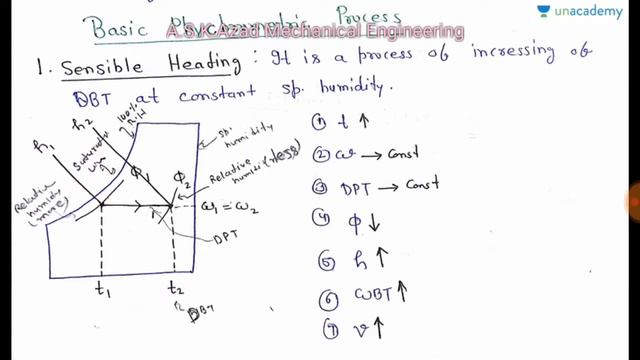 Basic Psychrometric Process
A.S.K Azad Mechanical Engineering
unacademy
1. Sensible Heading : It is a process of increasing of
DBT at constant sp. humidity.
h1
h2
100%
R.H
Saturated
line
Φ1
Φ2
sp.
humidity
Relative
humidity (less)
Relative
humidity
(more)
ω1 = ω2
DPT
t1
t2
DBT
① t ↑
② ω → Const
③ DPT → Const
④ ϕ ↓
⑤ h ↑
⑥ WBT ↑
⑦ v ↑